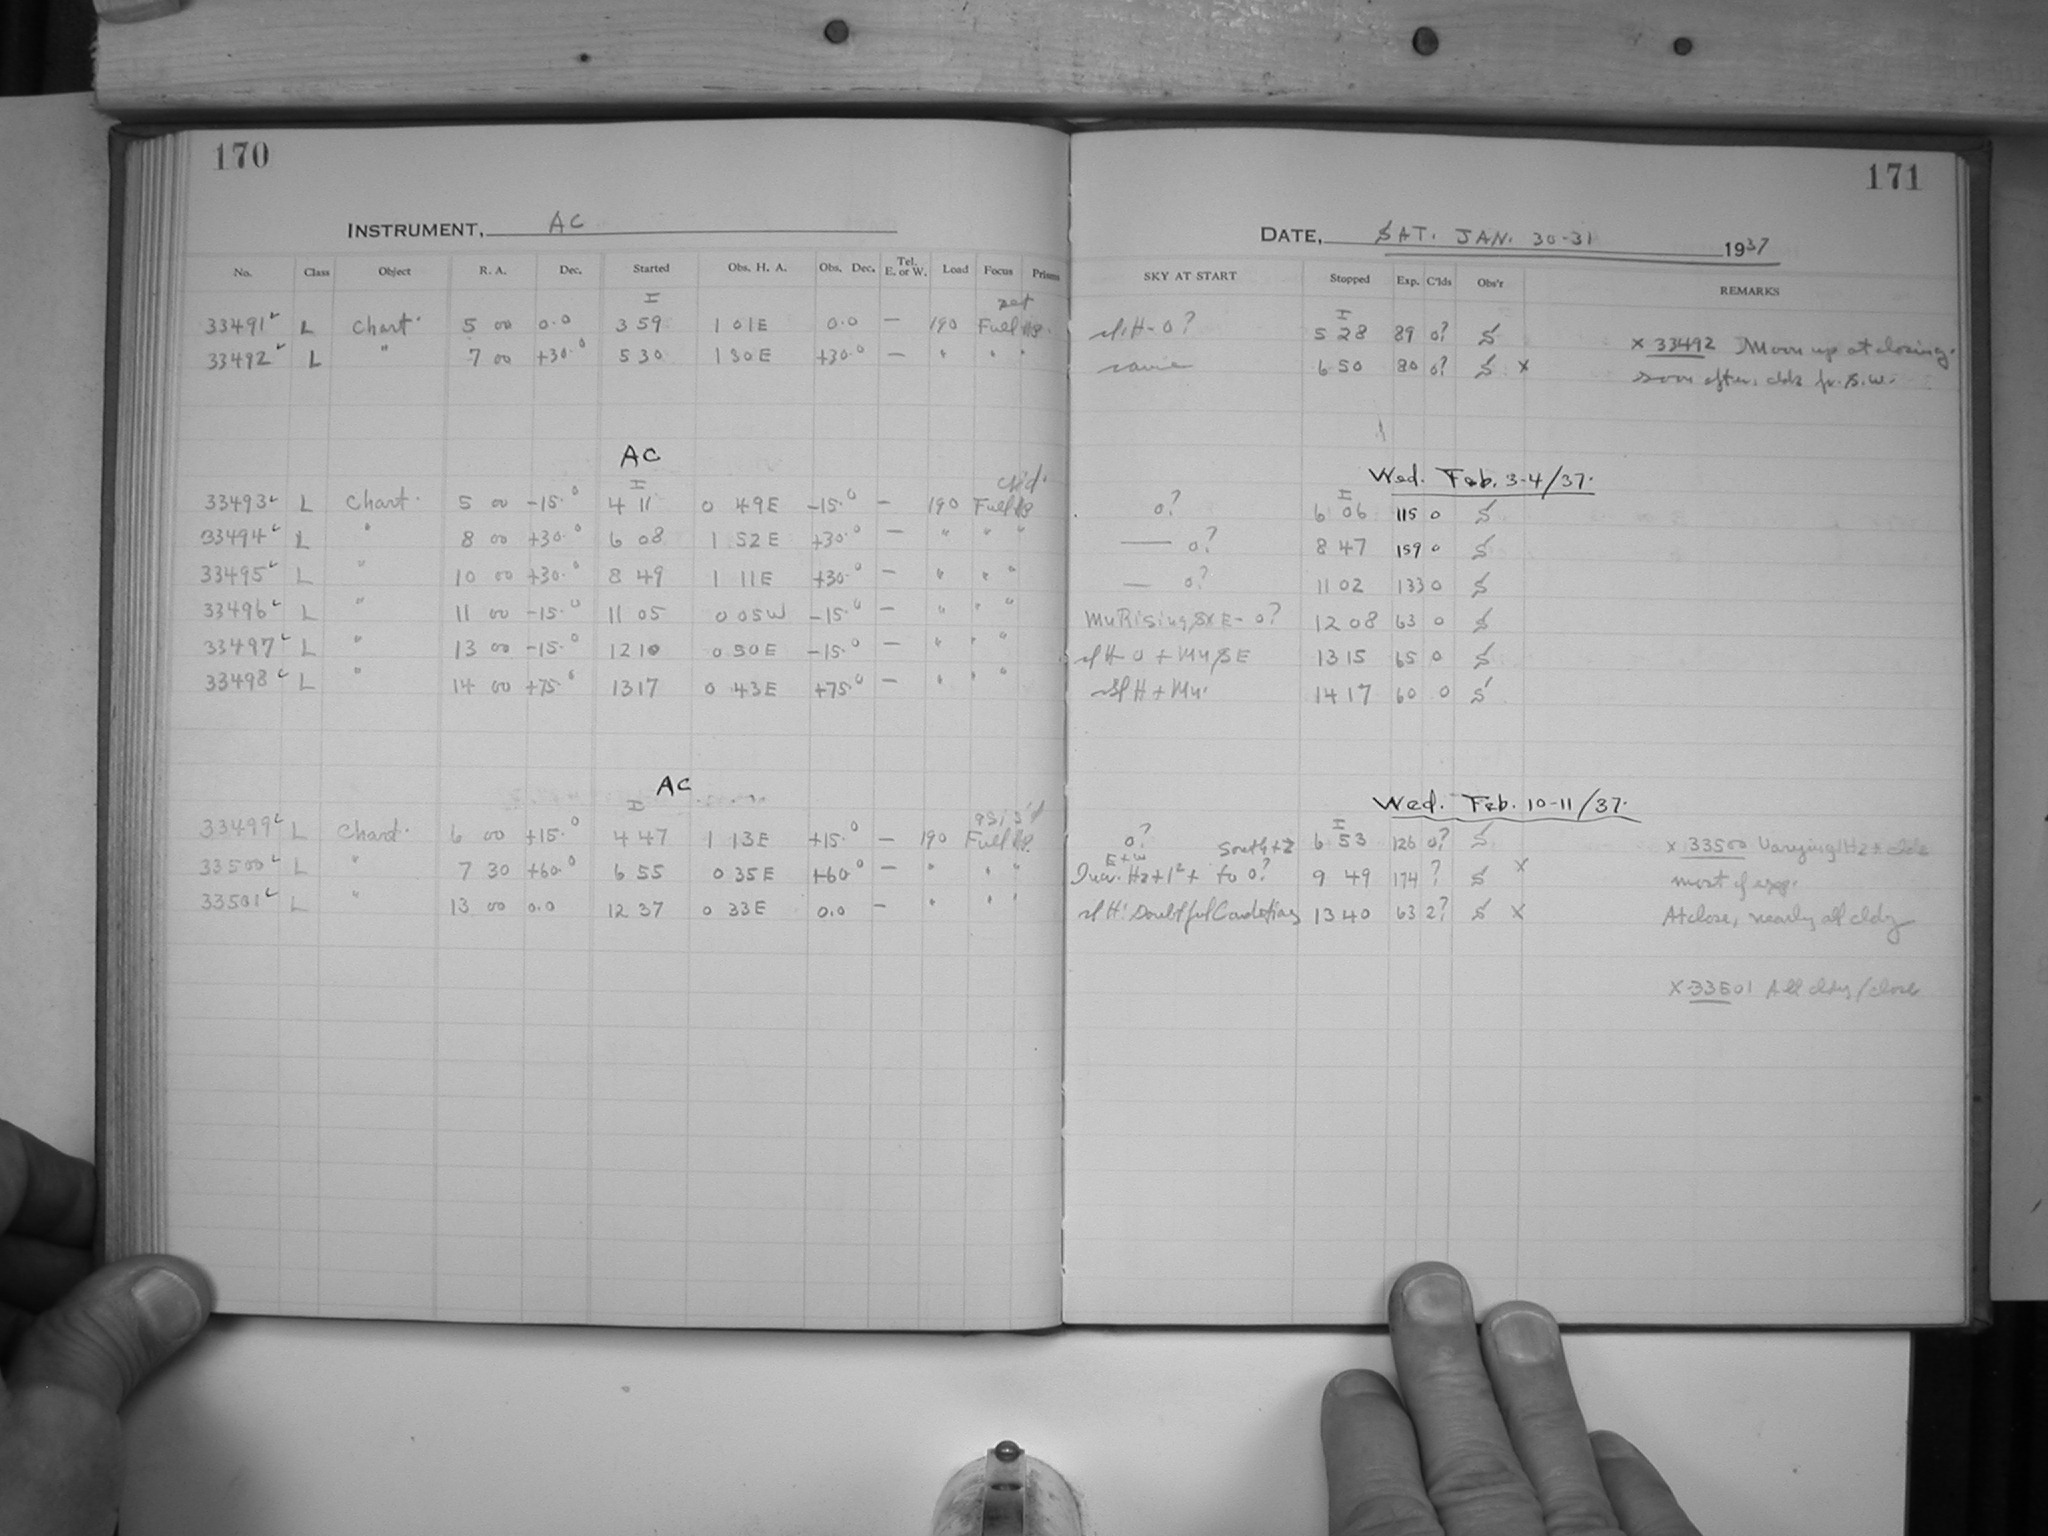 170
INSTRUMENT, AC
No. Class Object R. A. Dec. Started Obs. H. A. Obs. Dec. Tel. E. or W. Load Focus Prisms
I set
33491 L Chart. 5 00 0.0 3 59 1 01E 0.0 — 190 Full
33492 L " 7 00 +30.0 5 30 1 30E +30.0 — " " "
AC
I ch'd.
33493 L Chart. 5 00 -15.0 4 11 0 49E -15.0 — 190 Full
33494 L " 8 00 +30.0 6 08 1 52E +30.0 — " " "
33495 L " 10 00 +30.0 8 49 1 11E +30.0 — " " "
33496 L " 11 00 -15.0 11 05 0 05W -15.0 — " " "
33497 L " 13 00 -15.0 12 10 0 50E -15.0 — " " "
33498 L " 14 00 +75.0 13 17 0 43E +75.0 — " " "
AC
I
33499 L Chart. 6 00 +15.0 4 47 1 13E +15.0 — 190 Full
33500 L " 7 30 +60.0 6 55 0 35E +60.0 — " " "
33501 L " 13 00 0.0 12 37 0 33E 0.0 — " " "
171
DATE, SAT. JAN. 30-31 1937
SKY AT START Stopped Exp. C'lds Obs'r REMARKS
I
Sl. H - 0? 5 28 89 0? S
x 33492 Moon up at closing.
same 6 50 80 0? S x
soon after, clds fr. S.W.
Wed. Feb. 3-4/37.
I
0? 6 06 115 0 S
— 0? 8 47 159 0 S
— 0? 11 02 133 0 S
Mn Rising SxE - 0? 12 08 63 0 S
Sl H 0 + Mn/SE 13 15 65 0 S
Sl H + Mn. 14 17 60 0 S
Wed. Feb. 10-11/37.
I
0? 6 53 126 0? S
South + Z
x 33500 Varying Hz + clds
E + W
Hz + to 0? 9 49 174 ? S x
most of exp.
Sl H! Doubtful Conditions 13 40 63 2? S x
At close, nearly all cldy
x 33501 All cldy/close